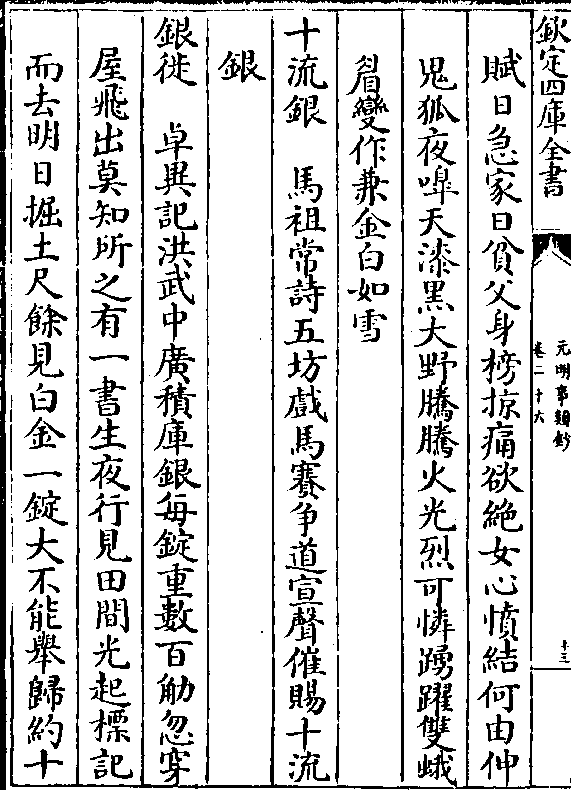 欽定四庫全書
元明事類鈔
卷二十六
十三
賦日急家日貧父身榜掠痛欲絶女心憤結何由伸
鬼狐夜嘷天漆黑大野騰騰火光烈可憐踴躍雙蛾
眉變作兼金白如雪
十流銀　馬祖常詩五坊戲馬賽争道宣聲催賜十流
銀
銀徙　卓異記洪武中廣積庫銀每錠重數百觔忽穿
屋飛出莫知所之有一書生夜行見田間光起標記
而去明日掘土尺餘見白金一錠大不能舉歸約十